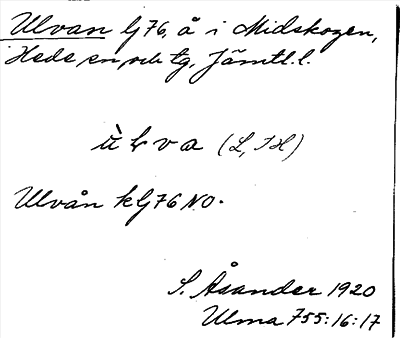 Ulvan lj76, å i Midskogen,
Hede sn och tg, Jämtl. l.
Ulvån klj76 NO.
S. Åsander 1920
Ulma 755:16:17